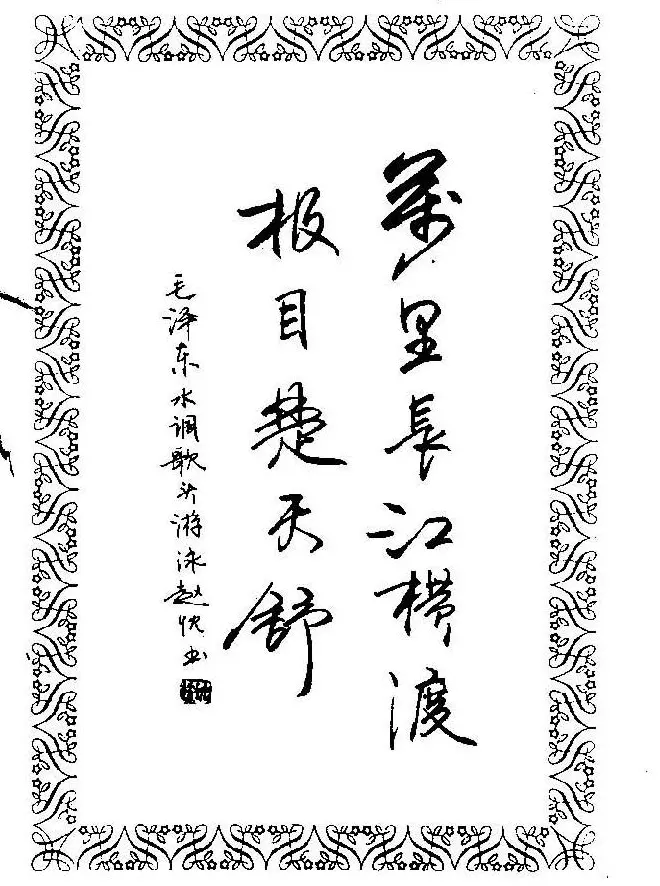 萬里長江横渡
极目楚天舒
毛泽东水调歌头游泳赵书